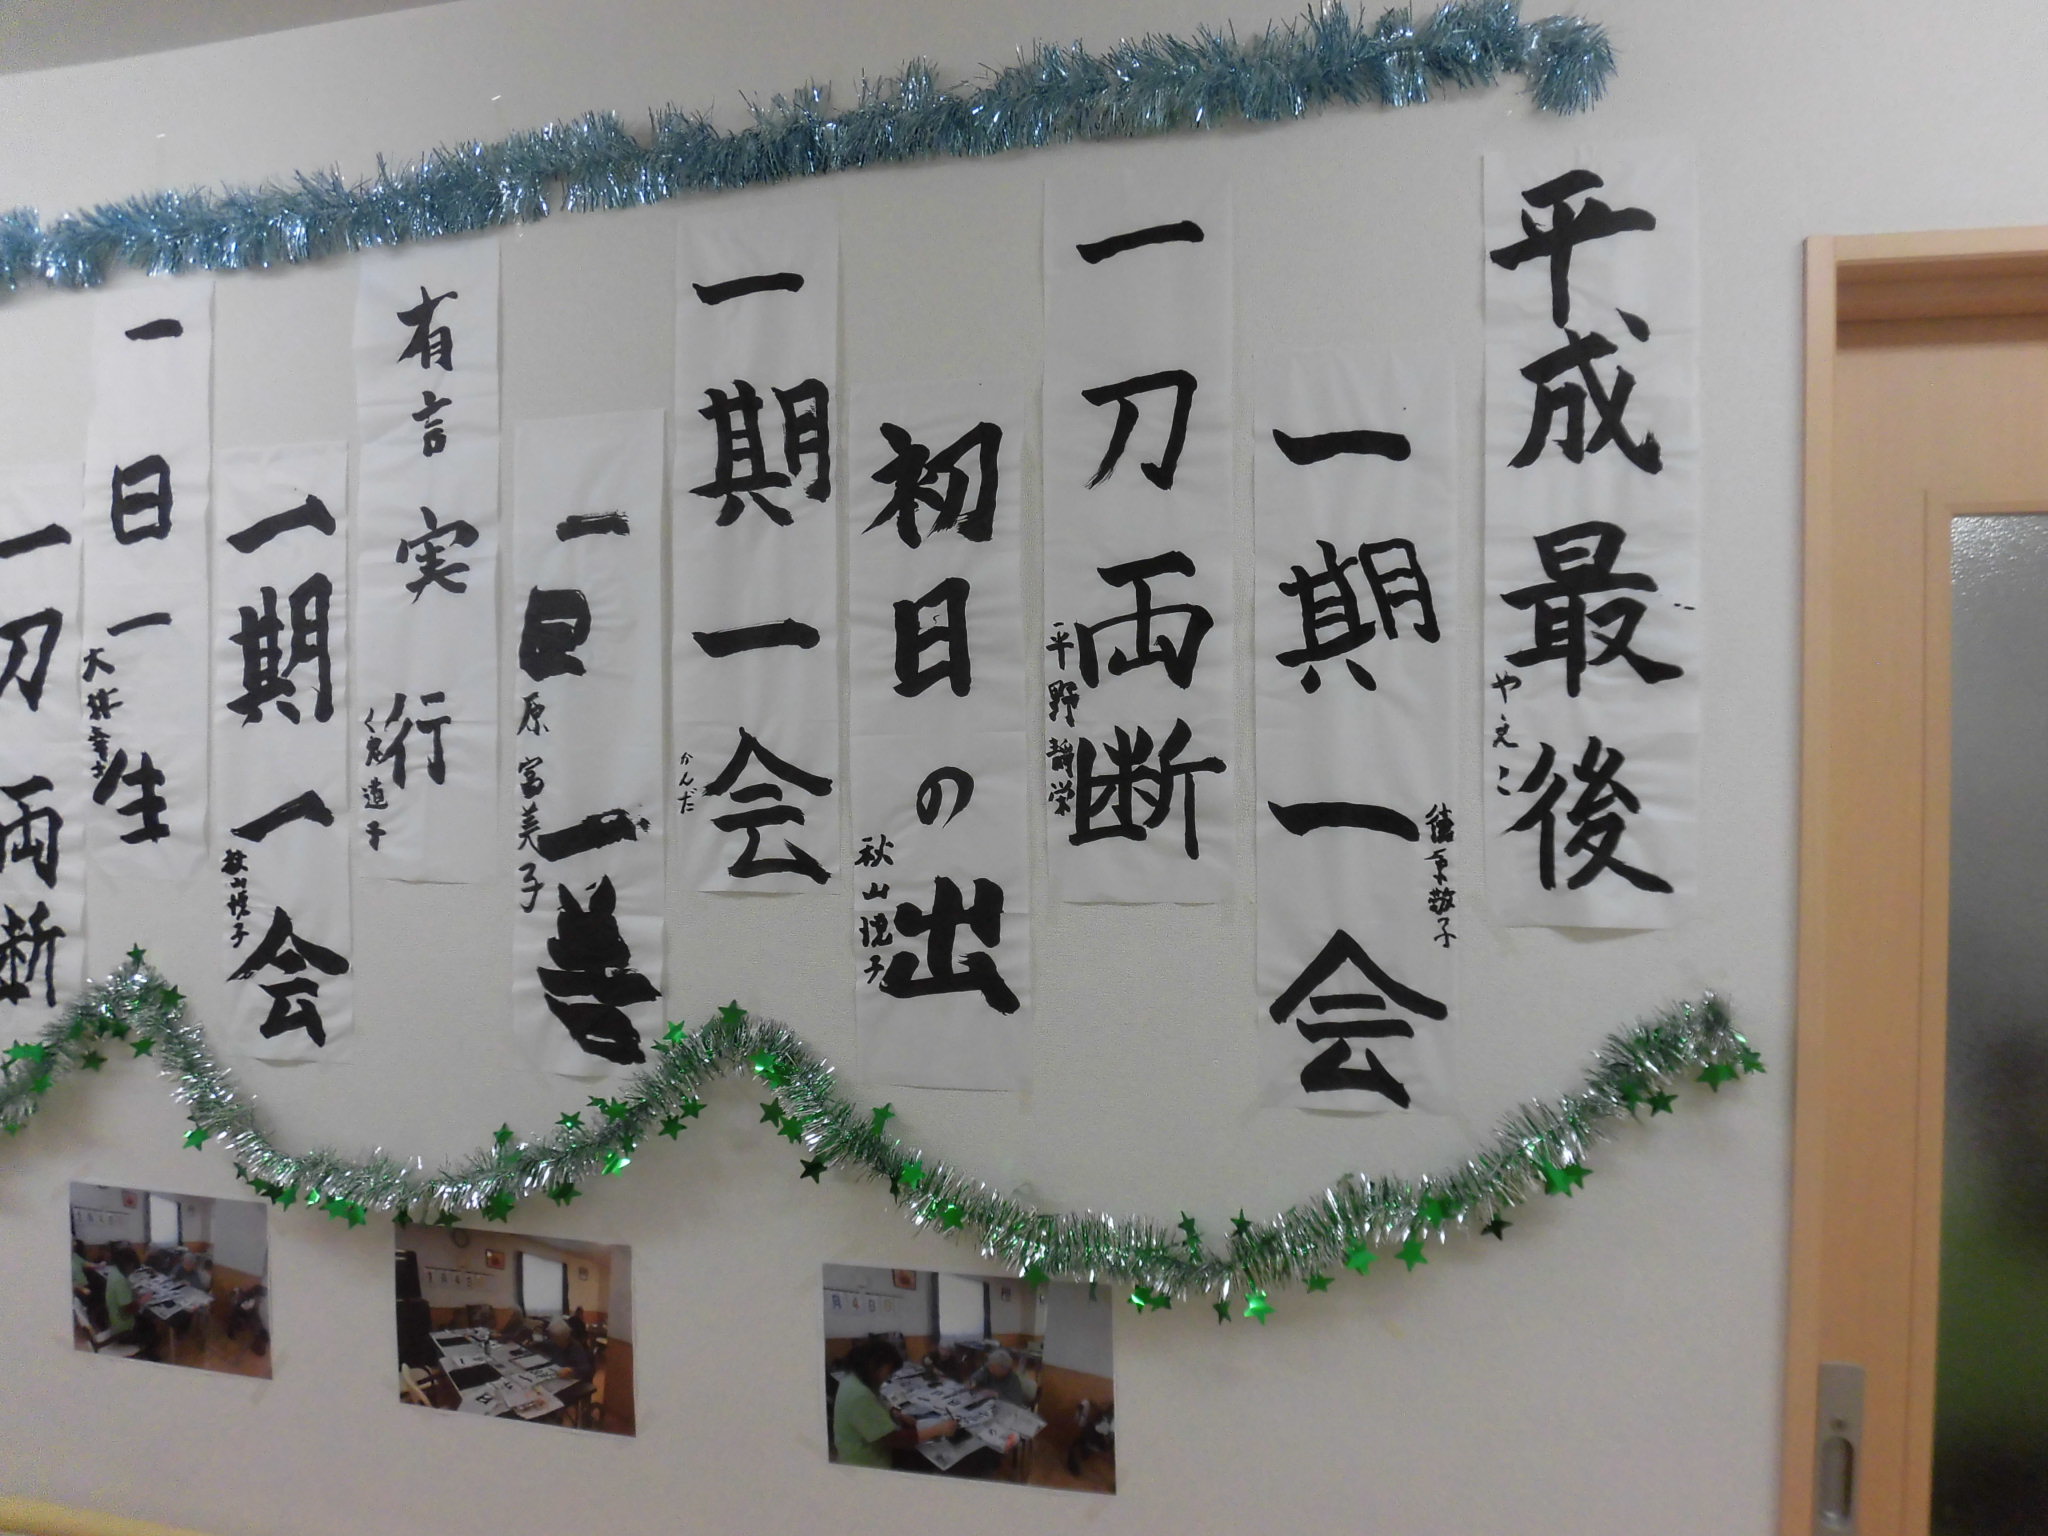 平成最後
やえこ
一期一会
一刀両断
平野静栄
初日の出
秋山悦子
一期一会
かんだ
一日一善
原富美子
有言実行
一期一会
秋山悦子
一日一生
一刀両断